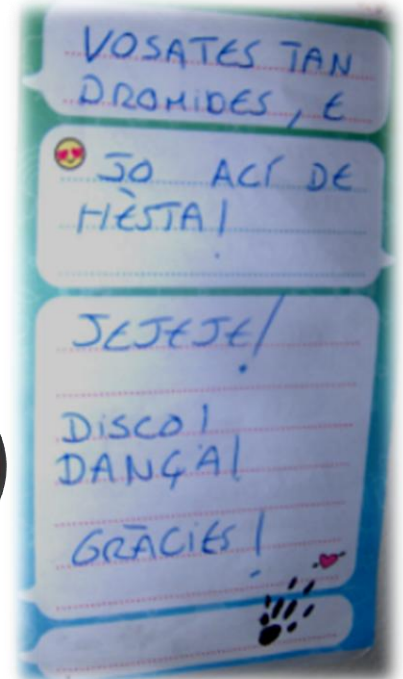 VOSATES TAN
DROMIDES, E
JO ACÍ DE
HÈSTA!
JEJEJE!
DISCO!
DANÇA!
GRÀCIES!